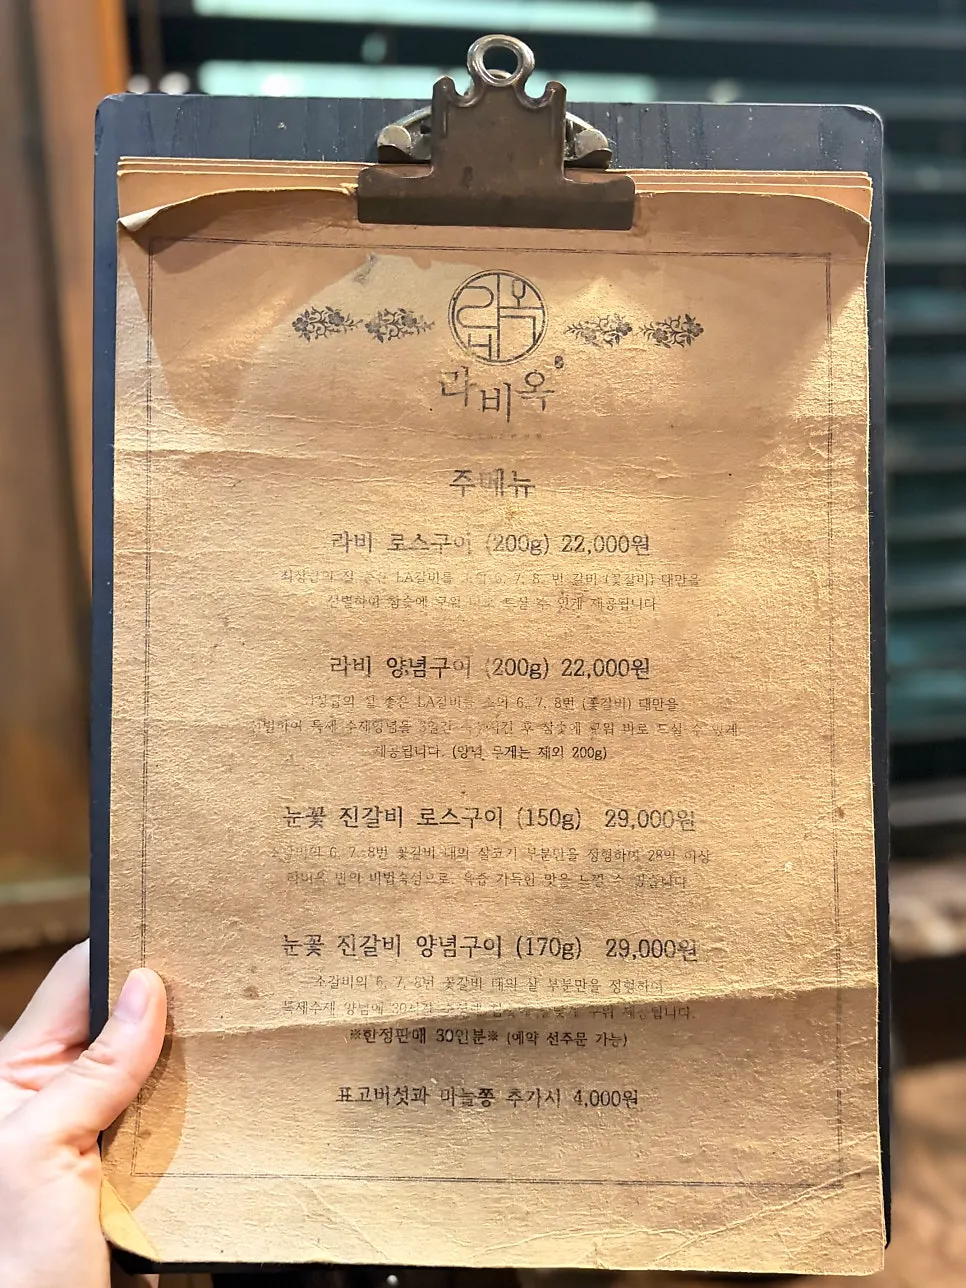 라비옥
라비옥
주메뉴
라비 로스구이 (200g) 22,000원
최상급의 질 좋은 LA갈비를 6, 7, 8, 번 갈비 (꽃갈비) 대만을
선별하여 참숯에 구워 바로 드실 수 있게 제공됩니다
라비 양념구이 (200g) 22,000원
질 좋은 LA갈비를 소의 6, 7, 8번 (꽃갈비) 대만을
특제 수제양념을 3일간 후 참숯에 구워 바로 드실 수 있게
제공됩니다. (양념 무게는 제외 200g)
눈꽃 진갈비 로스구이 (150g) 29,000원
소갈비의 6, 7, 8번 꽃갈비 대의 살코기 부분만을 정형하여 28일 이상
라비옥 만의 비법숙성으로, 육즙 가득한 맛을 느낄 수 있습니다
눈꽃 진갈비 양념구이 (170g) 29,000원
소갈비의 6, 7, 8번 꽃갈비 대의 살 부분만을 정형하여
특제수제 양념에 30시간 구워 제공됩니다.
※한정판매 30인분※ (예약 선주문 가능)
표고버섯과 마늘쫑 추가시 4,000원